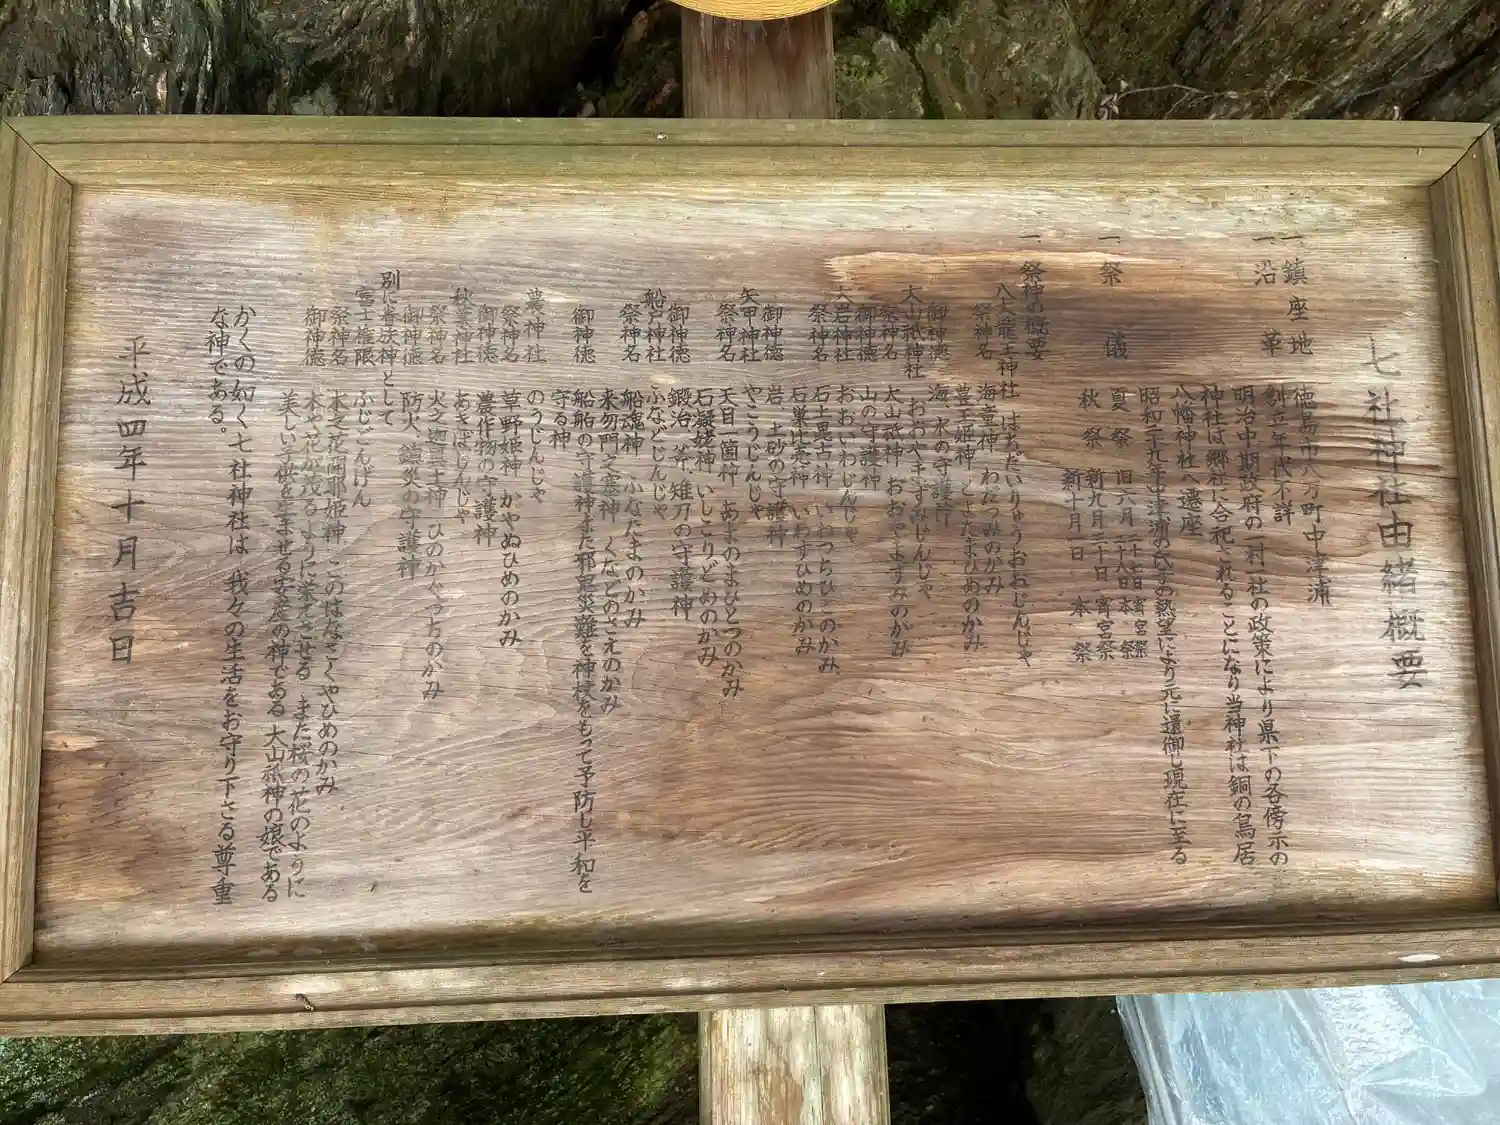 七社神社由緒概要
一、鎮座地 徳島市八万町中津浦
一、沿革 創立年代不詳
明治中期政府の一村一社の政策により県下の各傍示の
神社は郷社に合祀されることになり当神社は銅の鳥居
八幡神社へ遷座
昭和二十九年中津浦の氏子の熱望により元に還御し現在に至る
一、祭儀 夏祭 旧六月 宵宮祭
本祭
秋祭 新九月三十日 宵宮祭
新十月一日 本祭
一、祭神の概要
八大龍王神社 はちだいりゅうおおじんじゃ
祭神名 海童神 わだつみのかみ
豊玉姫神 とよたまひめのかみ
御神徳 海、水の守護神
大山祇神社 おおやまずみじんじゃ
祭神名 大山祇神 おおやまずみのかみ
御神徳 山の守護神
大岩神社 おおいわじんじゃ
祭神名 石土毘古神 いわつちびこのかみ
石巣比売神 いわすひめのかみ
御神徳 岩、土砂の守護神
矢甲神社 やこうじんじゃ
祭神名 天目一箇神 あまのまひとつのかみ
石凝姥神 いしこりどめのかみ
御神徳 鍛冶、斧、雉刀の守護神
船戸神社 ふなどじんじゃ
祭神名 船魂神 ふなだまのかみ
来勿門之塞神 くなどのさえのかみ
御神徳 船舶の守護神また邪悪災難を神杖をもって予防し平和を
守る神
農神社 のうじんじゃ
祭神名 草野姫神 かやぬひめのかみ
御神徳 農作物の守護神
秋葉神社 あきばじんじゃ
祭神名 火之迦具土神 ひのかぐつちのかみ
御神徳 防火、鎮災の守護神
別に番外神として
富士権限 ふじごんげん
祭神名 木之花開耶姫神 このはなさくやひめのかみ
御神徳 木や花が茂るように栄えさせる また桜の花のように
美しい子供を生ませる安産の神である 大山祇神の娘である
かくの如く七社神社は 我々の生活をお守り下さる尊重
な神である。
平成四年十月吉日